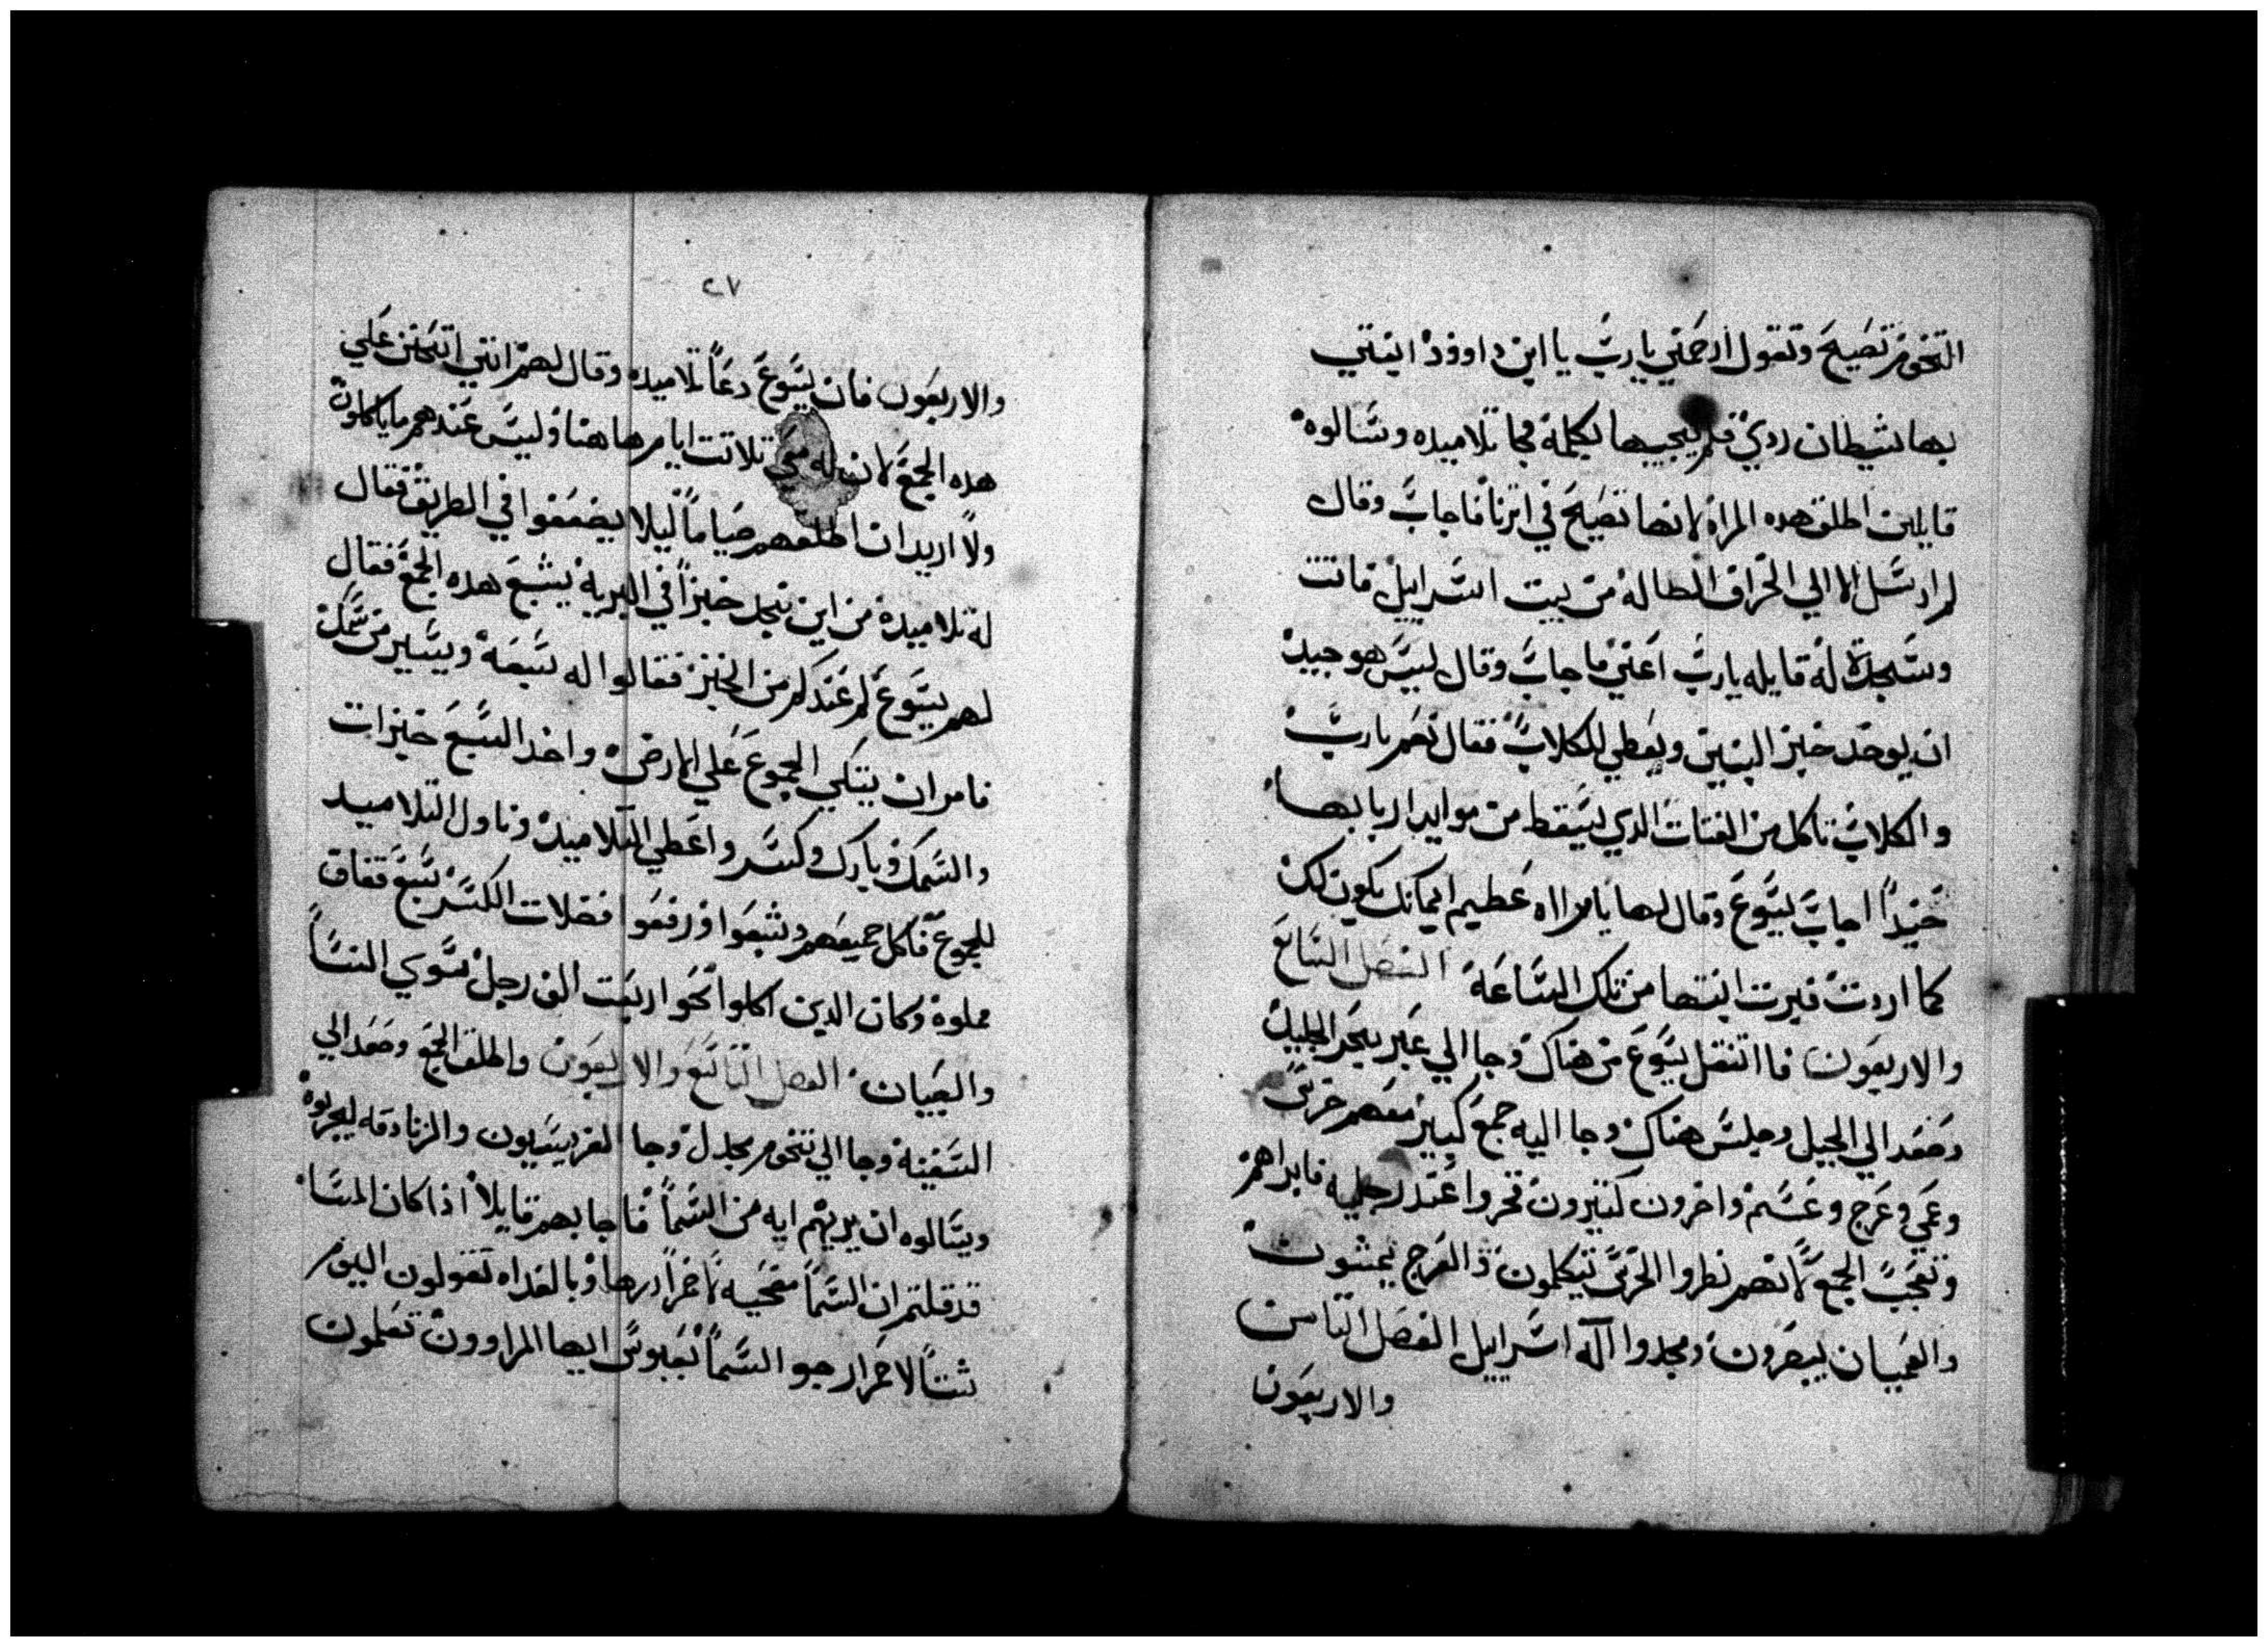 التخوم تصيح وتقول ارحمني يا رب يا ابن داوود ابنتي
بها شيطان ردي فلم يجيبها بكلمة فجا تلاميده وسالوه
قايلين اطلق هده المراه لانها تصيح في اترنا فاجاب وقال
لم ارسل الا الي الخراف الضاله من بيت اسراييل فاتت
وسجدت له قايله يا رب اعني فاجاب وقال ليس هو جيد
ان يوخد خبز البنين ويعطي للكلاب فقال نعم يا رب
والكلاب تاكل من الفتات الدي يسقط من موايد اربابها
حنيداً اجاب يسوع وقال لها يا مراه عظيم ايمانك يكون لك
كما اردت فبرت ابنتها من تلك الساعة الفصل السابع
والاربعون فا انتقل يسوع من هناك وجا الي عبر بحر الجليل
وصعد الي الجبل وجلس هناك وجا اليه جمع كبير معهم خرس
وعمي وعرج وعسم واخرون كتيرون فخروا عند رجليه فابراهم
وتعجب الجمع لانهم نظروا الخرس تتكلمون والعرج يمشون
والعميان يبصرون ومجدوا اله اسراييل الفصل التامن
والاربعون
٢٧
والاربعون فان يسوع دعا تلاميده وقال لهم انني اتحنن علي
هده الجمع لان له معي تلاتت ايام هاهنا وليس عندهم ما ياكلون
ولا اريد ان اطلقهم صياماً ليلا يضعفوا في الطريق فقال
له تلاميده من اين نجد خبزاً في البرية يشبع هده الجمع فقال
لهم يسوع كم عندكم من الخبز فقالوا له سبعه ويسير من سمك
فامر ان يتكي الجموع علي الارض واخد السبع خبزات
والسمك وبارك وكسر واعطي التلاميد وناول التلاميد
للجموع فاكل جميعهم وشبعوا ورفعوا فضلات الكسر سبع قفاف
مملوة وكان الدين اكلوا نحوا اربعت الف رجل سوي النسا
والصبيان الفصل التاسع والاربعون واطلق الجمع وصعد الي
السفينة وجا الي تخوم مجدل وجا الفريسيون والزنادقه ليجربوه
ويسالوه ان يريهم ايه من السما فاجابهم قايلا اذا كان المسا
قد قلتم ان السما مضحيه لاحمرارها وبالغداه تقولون اليوم
شتا لاحمرار جو السما بعبوس ايها المراوون تعلمون